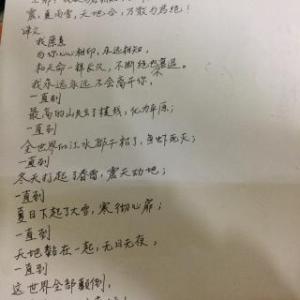 震,夏雨雪,天地合,乃敢与君绝!
译文
我愿意
与你心心相印,永远相知
和天命一样长久,不断绝也不衰退。
我永远永远不会离开你,
一直到
最高的山失去了棱线,化为平原;
一直到
全世界的江水都干枯了,鱼虾死灭;
一直到
冬天打起了春雷,震天动地;
一直到
夏日下起了大雪,寒彻心扉;
一直到
天地黏在一起,无日无夜;
一直到
这世界全部颠倒,